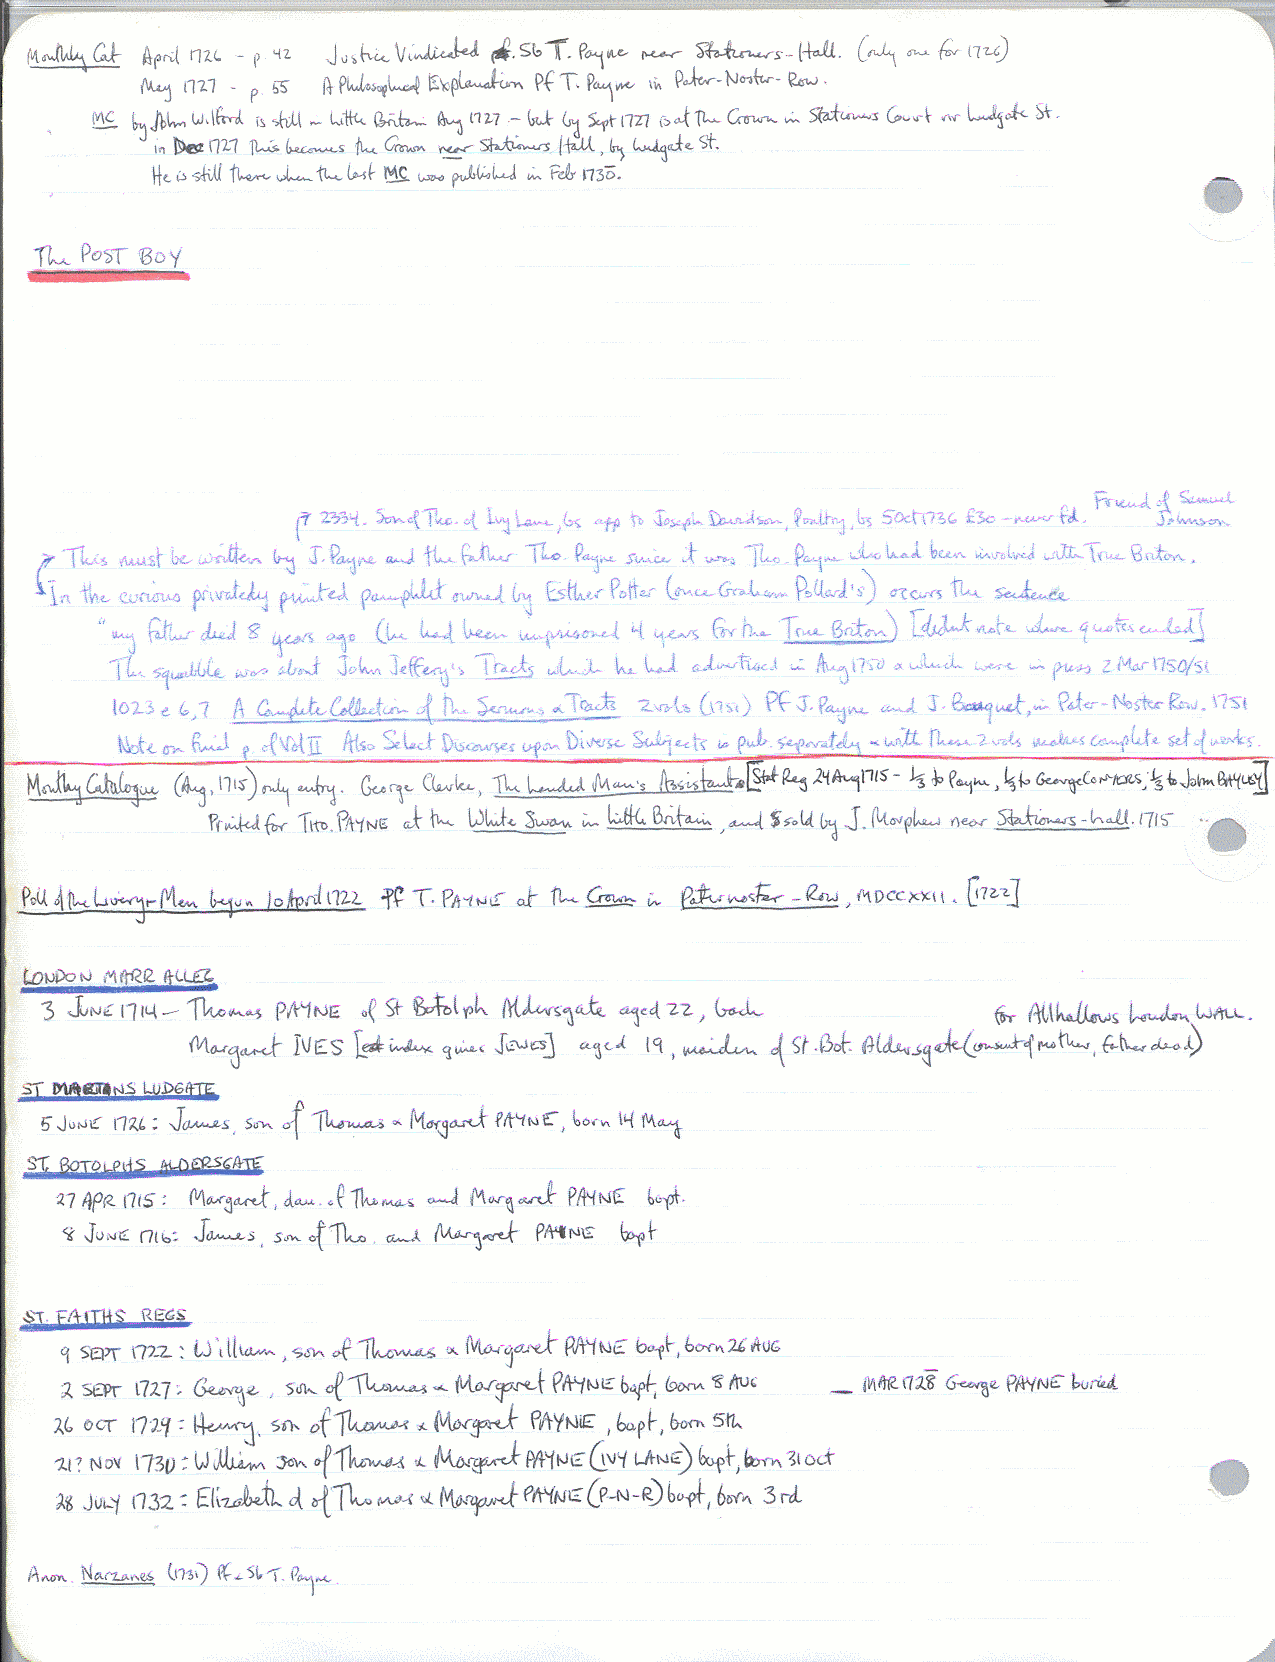 Monthly Cat April 1726 - p 42 Justice Vindicated pf. Sb T. Payne near Stationers-Hall. (only one for 1726)
May 1727 - p. 55 A Philosophical Explanation Pf T. Payne in Pater-Noster-Row.
MC by John Wilford is still in Little Britain Aug 1727 - but by Sept 1727 is at The Crown in Stationers Court nr Ludgate St.
in Dec 1727 this becomes the Crown near Stationers Hall, by Ludgate St.
He is still there when the last MC was published in Feb 1730.
The POST BOY
Friend of Samuel Johnson
? 2334. Son of Tho. of Ivy Lane, bs app to Joseph Davidson, Poultry, bs 5 Oct 1736 £30 - never fd.
? This must be written by J. Payne and the father Tho. Payne since it was Tho. Payne who had been involved with True Briton.
In the curious privately printed pamphlet owned by Esther Potter (once Graham Pollard's) occurs the sentence
"my father died 8 years ago (he had been imprisoned 4 years for the True Briton) [didn't note where quotes ended]
The squabble was about John Jeffery's Tracts which he had advertised in Aug 1750 & which were in press 2 Mar 1750/51
1023 e 6,7 A Complete Collection of the Sermons & Tracts 2 vols (1751) Pf J. Payne and J. Bouquet, in Pater-Noster Row. 1751
Note on final p. of Vol II Also Select Discourses upon Diverse Subjects is pub. separately & with these 2 vols makes complete set of works.
Monthly Catalogue (Aug, 1715) only entry. George Clerke, The Landed Man's Assistant [Stat Reg 24 Aug 1715 - ⅓ to Payne, ⅓ to George CONYERS, ⅓ to John BAYLEY]
Printed for THO. PAYNE at the White Swan in Little Britain, and sold by J. Morphew near Stationers-hall. 1715
Poll of the Livery-Men begun 10 April 1722 Pf T. PAYNE at the Crown in Paternoster-Row, MDCCXXII. [1722]
LONDON MARR ALLEG
3 JUNE 1714 - Thomas PAYNE of St Botolph Aldersgate aged 22, bach for Allhallows London WALL.
Margaret IVES [index gives JEWES] aged 19, maiden of St. Bot. Aldersgate (consent of mother, father dead)
ST MARTINS LUDGATE
5 JUNE 1726: James, son of Thomas & Margaret PAYNE, born 14 May
ST. BOTOLPHS ALDERSGATE
27 APR 1715: Margaret, dau. of Thomas and Margaret PAYNE bapt.
8 JUNE 1716: James, son of Tho. and Margaret PAYNE bapt
ST. FAITHS REGS
9 SEPT 1722: William, son of Thomas & Margaret PAYNE bapt, born 26 AUG
2 SEPT 1727: George, son of Thomas & Margaret PAYNE bapt, born 8 AUG — MAR 1728 George PAYNE buried
26 OCT 1729: Henry, son of Thomas & Margaret PAYNE, bapt, born 5th
21? NOV 1730: William son of Thomas & Margaret PAYNE (IVY LANE) bapt, born 31 Oct
28 JULY 1732: Elizabeth d of Thomas & Margaret PAYNE (P-N-R) bapt, born 3rd
Anon. Narzanes (1731) Pf & Sb T. Payne.